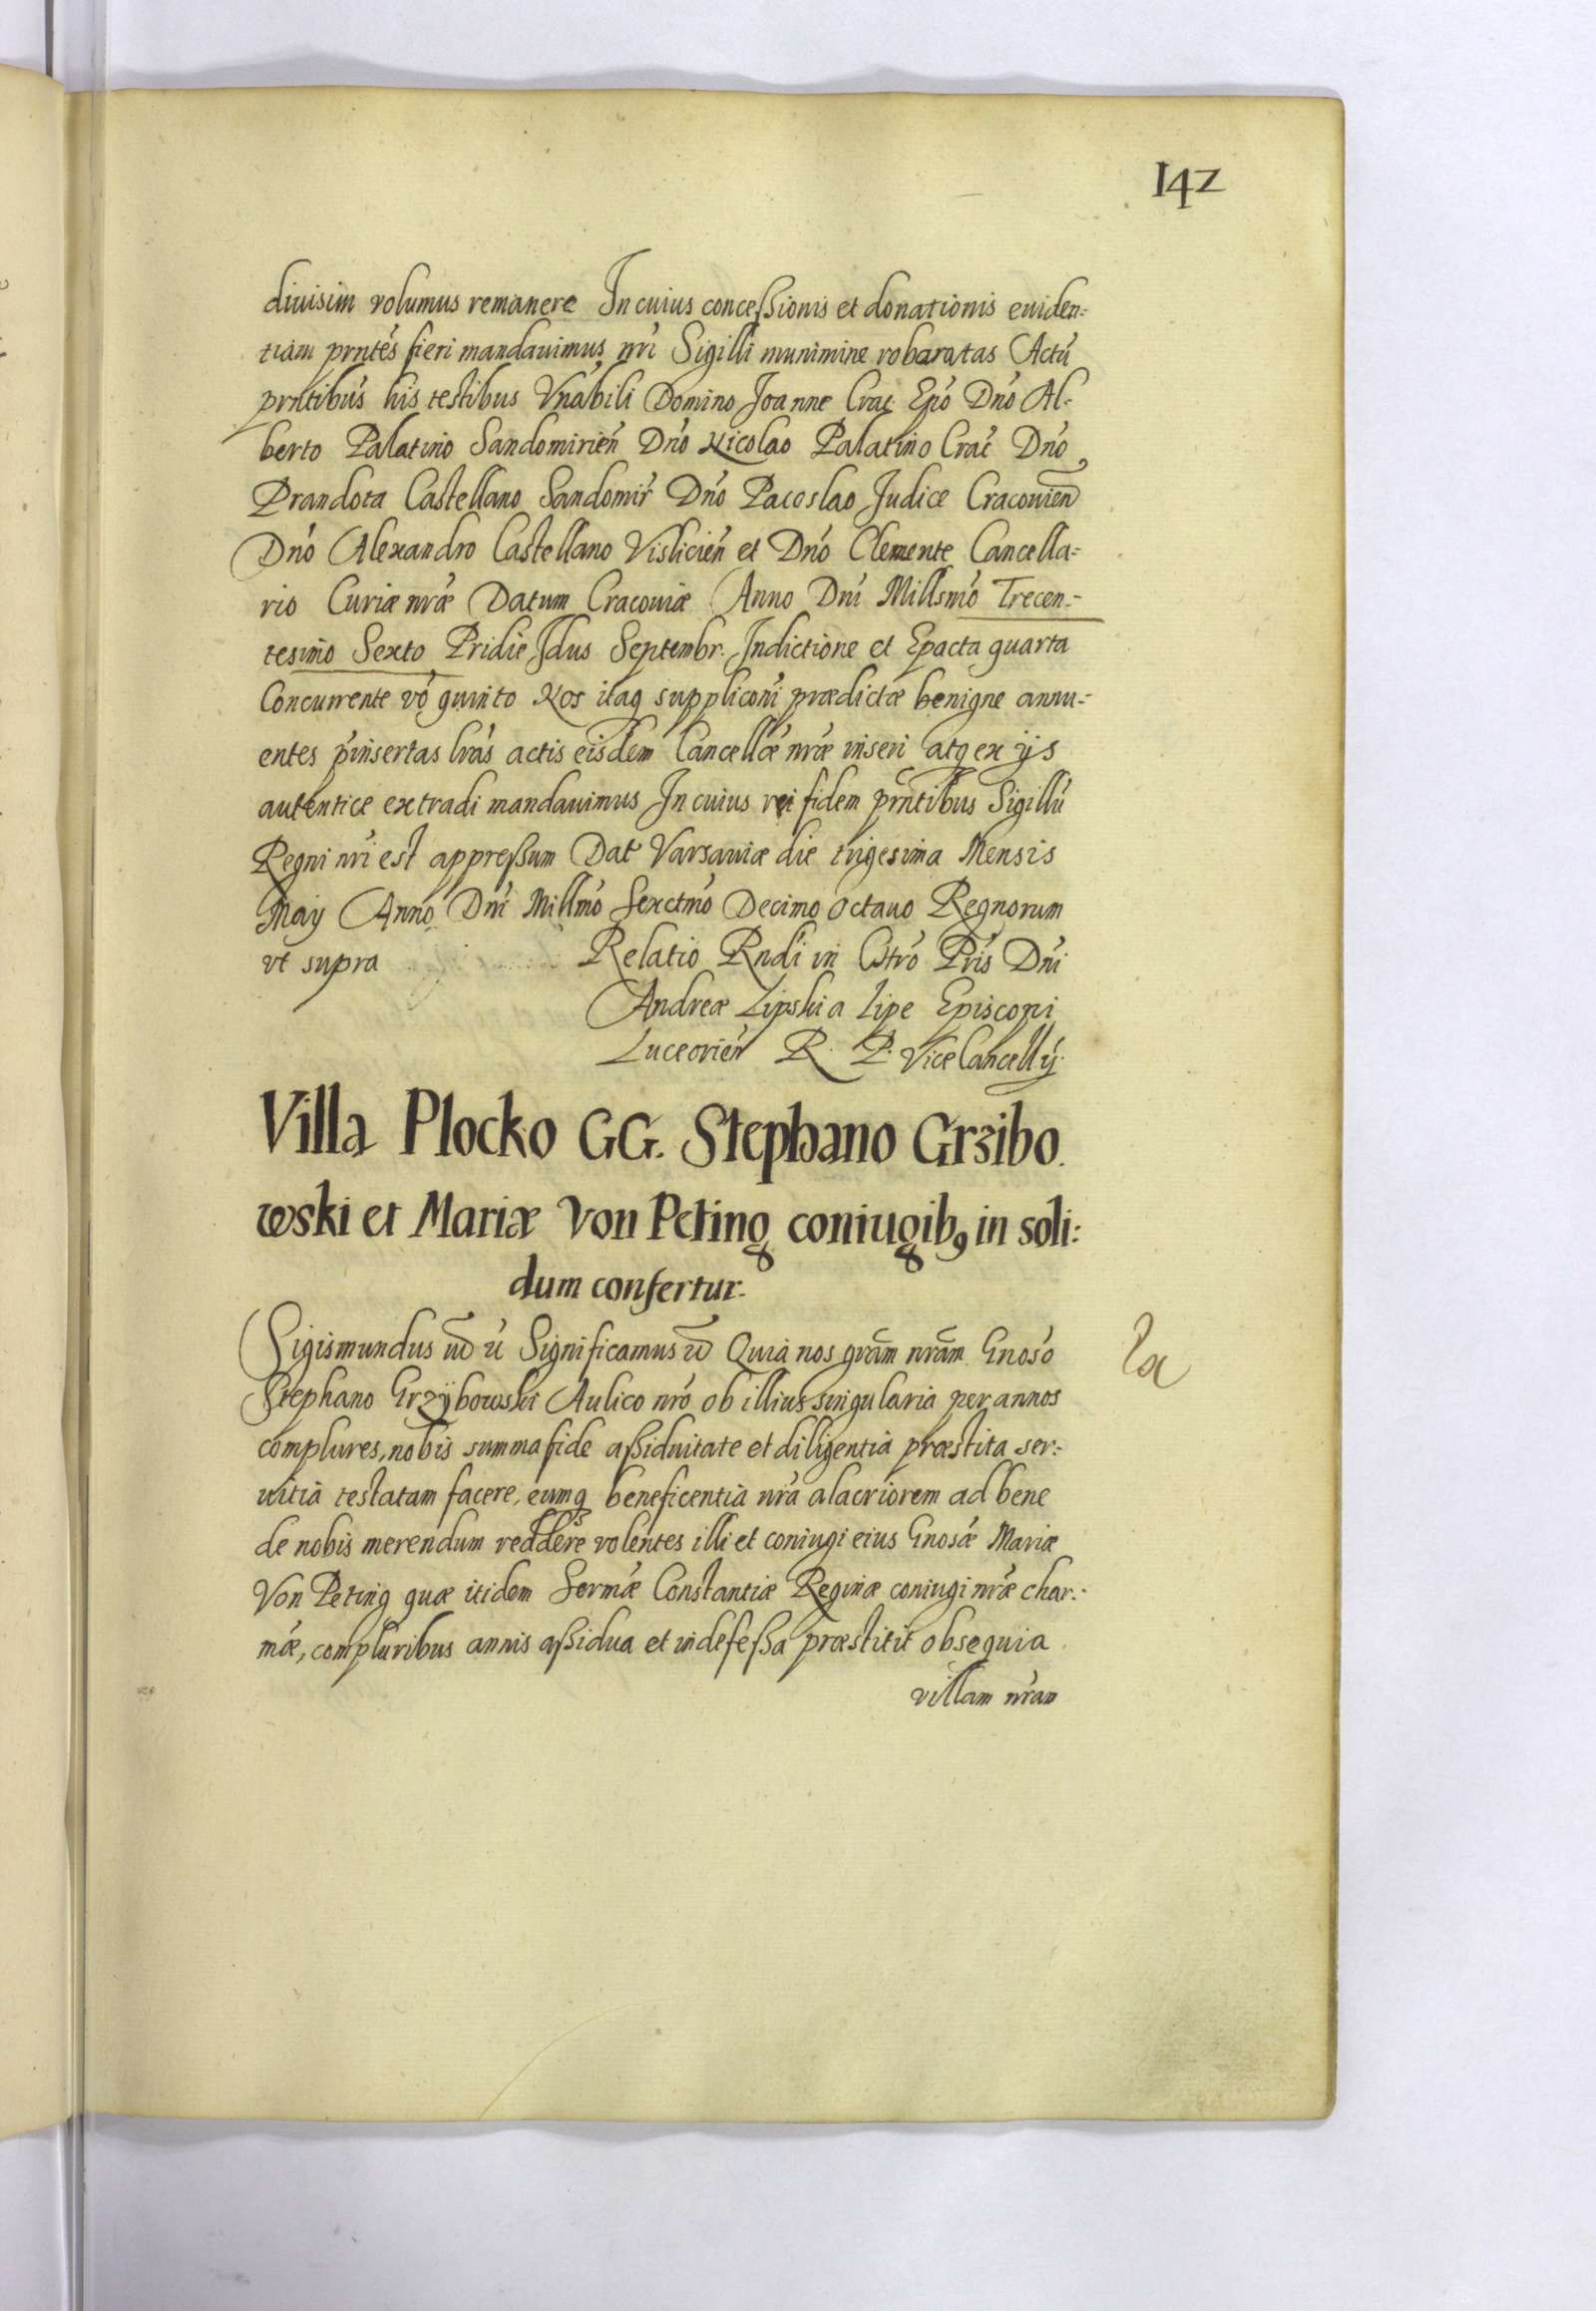 142
diuisim volumus remanere In cuius conceßionis et donationis euiden:
tiam prntes fieri mandauimus nri Sigilli munimine robaratas Actu
prntibus his testibus Vnabili Domino Joanne Crac Epo Dno Al:
berto Palatino Sandomirien Dno Nicolao Palatino Crac Dno
Prandota Castellano Sandomir Dno Pacoslao Judice Cracouien
Dno Alexandro Castellano Vislicien et Dno Clemente Cancella:
rio Curiæ nræ Datum Cracouiæ Anno Dni Millsmo Trecen:
tesimo Sexto Pridie Idus Septembr. Indictione et Epacta quarta
Concurrente vo quinto Nos itaq suppliconi prædictæ benigne annu:
entes pinsertas lras actis eisdem Cancellæ nræ inseri atq ex ijs
autentice extradi mandauimus In cuius rei fidem prntibus Sigillu
Regni nri est appreßum Dat Varsauiæ die trigesima Mensis
Maij Anno Dni Millmo Sexctmo Decimo octauo Regnorum
vt supra Relatio Rndi in Chro Pris Dni
Andreæ Lipski a Lipe Episcopi
Luceorien R. P. ViceCancellij.
Villa Plocko GG. Stephano Grzibo.
wski et Mariæ Von Peting coniugib9 in soli:
dum confertur.
Sigismundus Significamus Quia nos gram nram Gnoso
Stephano Grzÿbowski Aulico nro ob illius singularia per annos
complures, nobis summa fide aßiduitate et diligentia præstita ser:
uitia testatam facere, eumq beneficentia nra alacriorem ad bene
de nobis merendum reddere volentes illi et coniugi eius Gnosæ Mariæ
Von Peting quæ itidem Sermæ Constantiæ Reginæ coniugi nræ char:
mæ, compluribus annis aßidua et indefeßa præstitit obsequia
villam nram